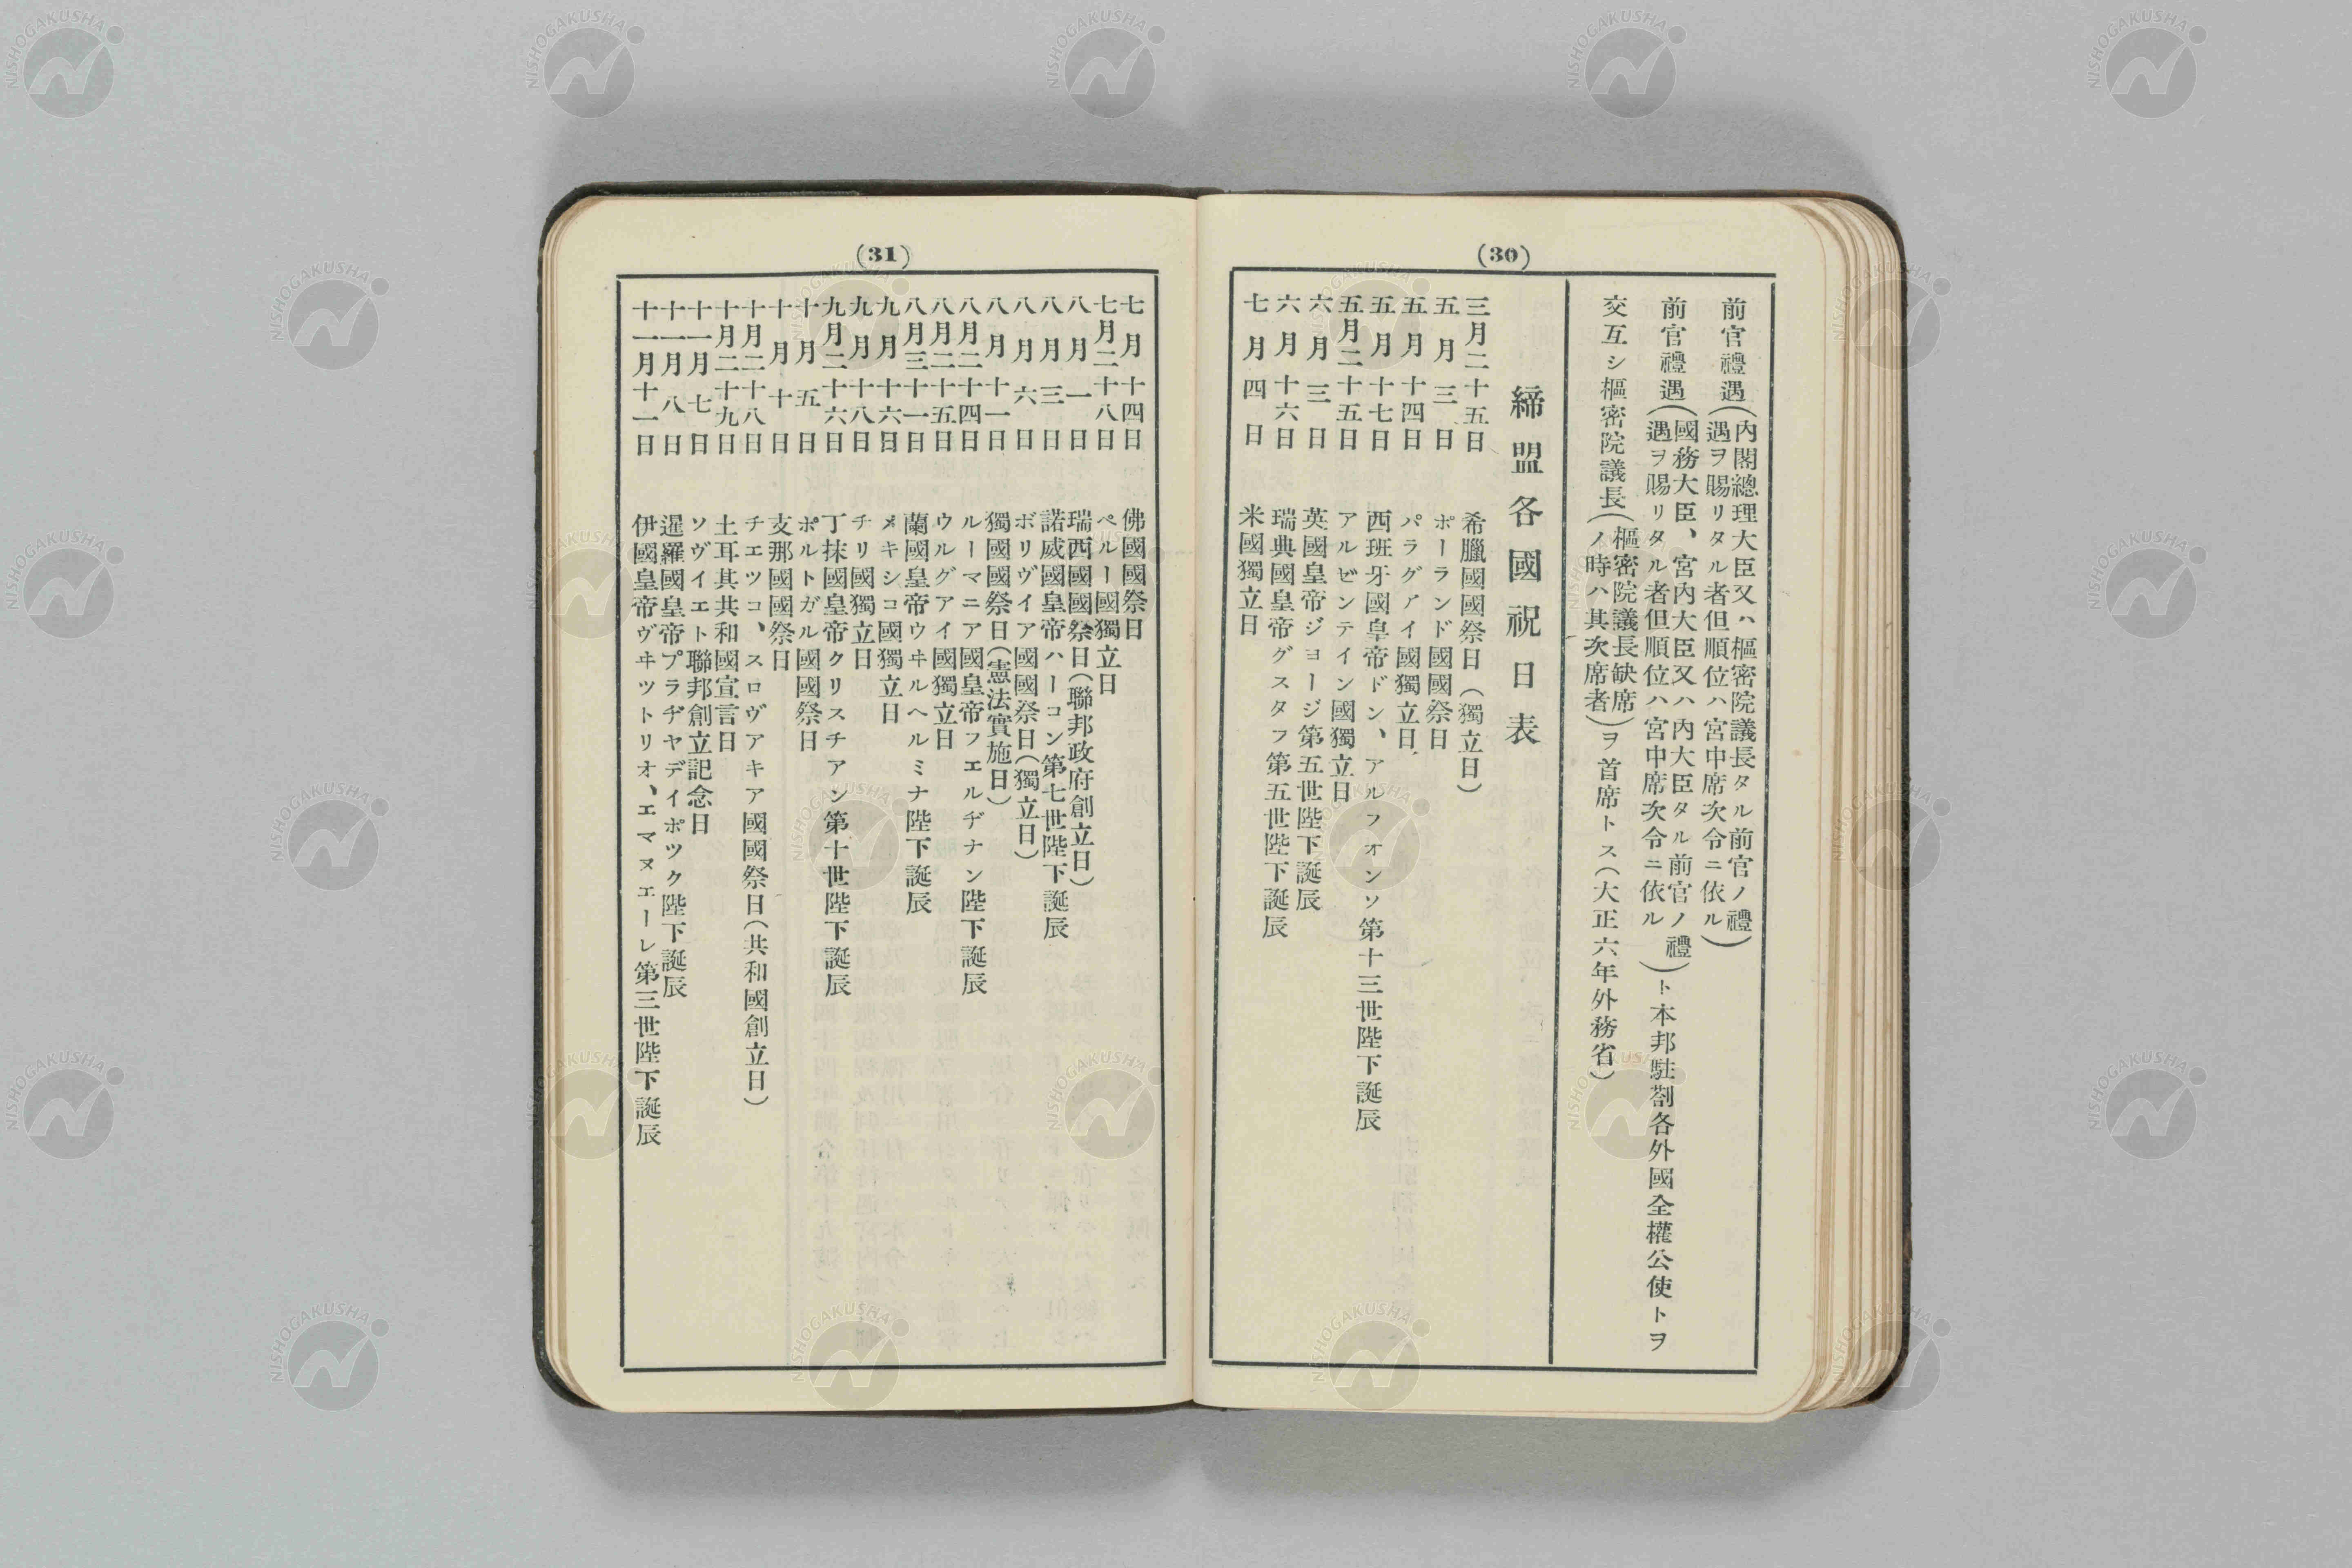 (30)
前官禮遇(内閣總理大臣又ハ樞密院議長タル前官ノ禮遇ヲ賜リタル者但順位ハ宮中席次令ニ依ル)
前官禮遇(國務大臣、宮内大臣又ハ内大臣タル前官ノ禮遇ヲ賜リタル者但順位ハ宮中席次令ニ依ル)ト本邦駐剳各外國全權公使トヲ
交互シ樞密院議長(樞密院議長缺席ノ時ハ其次席者)ヲ首席トス(大正六年外務省)
締盟各國祝日表
三月二十五日 希臘國國祭日(獨立日)
五月三日 ポーランド國國祭日
五月十四日 パラグアイ國獨立日
五月十七日 西班牙國皇帝ドン、アルフォンソ第十三世陛下誕辰
五月二十五日 アルゼンテイン國獨立日
六月三日 英國皇帝ジョージ第五世陛下誕辰
六月十六日 瑞典國皇帝グスタフ第五世陛下誕辰
七月四日 米國獨立日
(31)
七月十四日 佛國國祭日
七月二十八日 ペルー國獨立日
八月一日 瑞西國國祭日(聯邦政府創立日)
八月三日 諾威國皇帝ハーコン第七世陛下誕辰
八月六日 ボリヴイア國國祭日(獨立日)
八月十一日 獨國國祭日(憲法實施日)
八月二十四日 ルーマニア國皇帝フエルヂナン陛下誕辰
八月二十五日 ウルグアイ國獨立日
八月三十一日 蘭國皇帝ウヰルヘルミナ陛下誕辰
九月十六日 メキシコ國獨立日
九月十八日 チリ國獨立日
九月二十六日 丁抹國皇帝クリスチアン第十世陛下誕辰
十月五日 ポルトガル國國祭日
十月十日 支那國國祭日
十月二十八日 チエツコ、スロヴアキア國國祭日(共和國創立日)
十月二十九日 土耳其共和國宣言日
十一月七日 ソヴイエト聯邦創立記念日
十一月八日 暹羅國皇帝プラヂヤデイポツク陛下誕辰
十一月十一日 伊國皇帝ヴヰツトリオ、エマヌエーレ第三世陛下誕辰
NISHOGAKUSHA